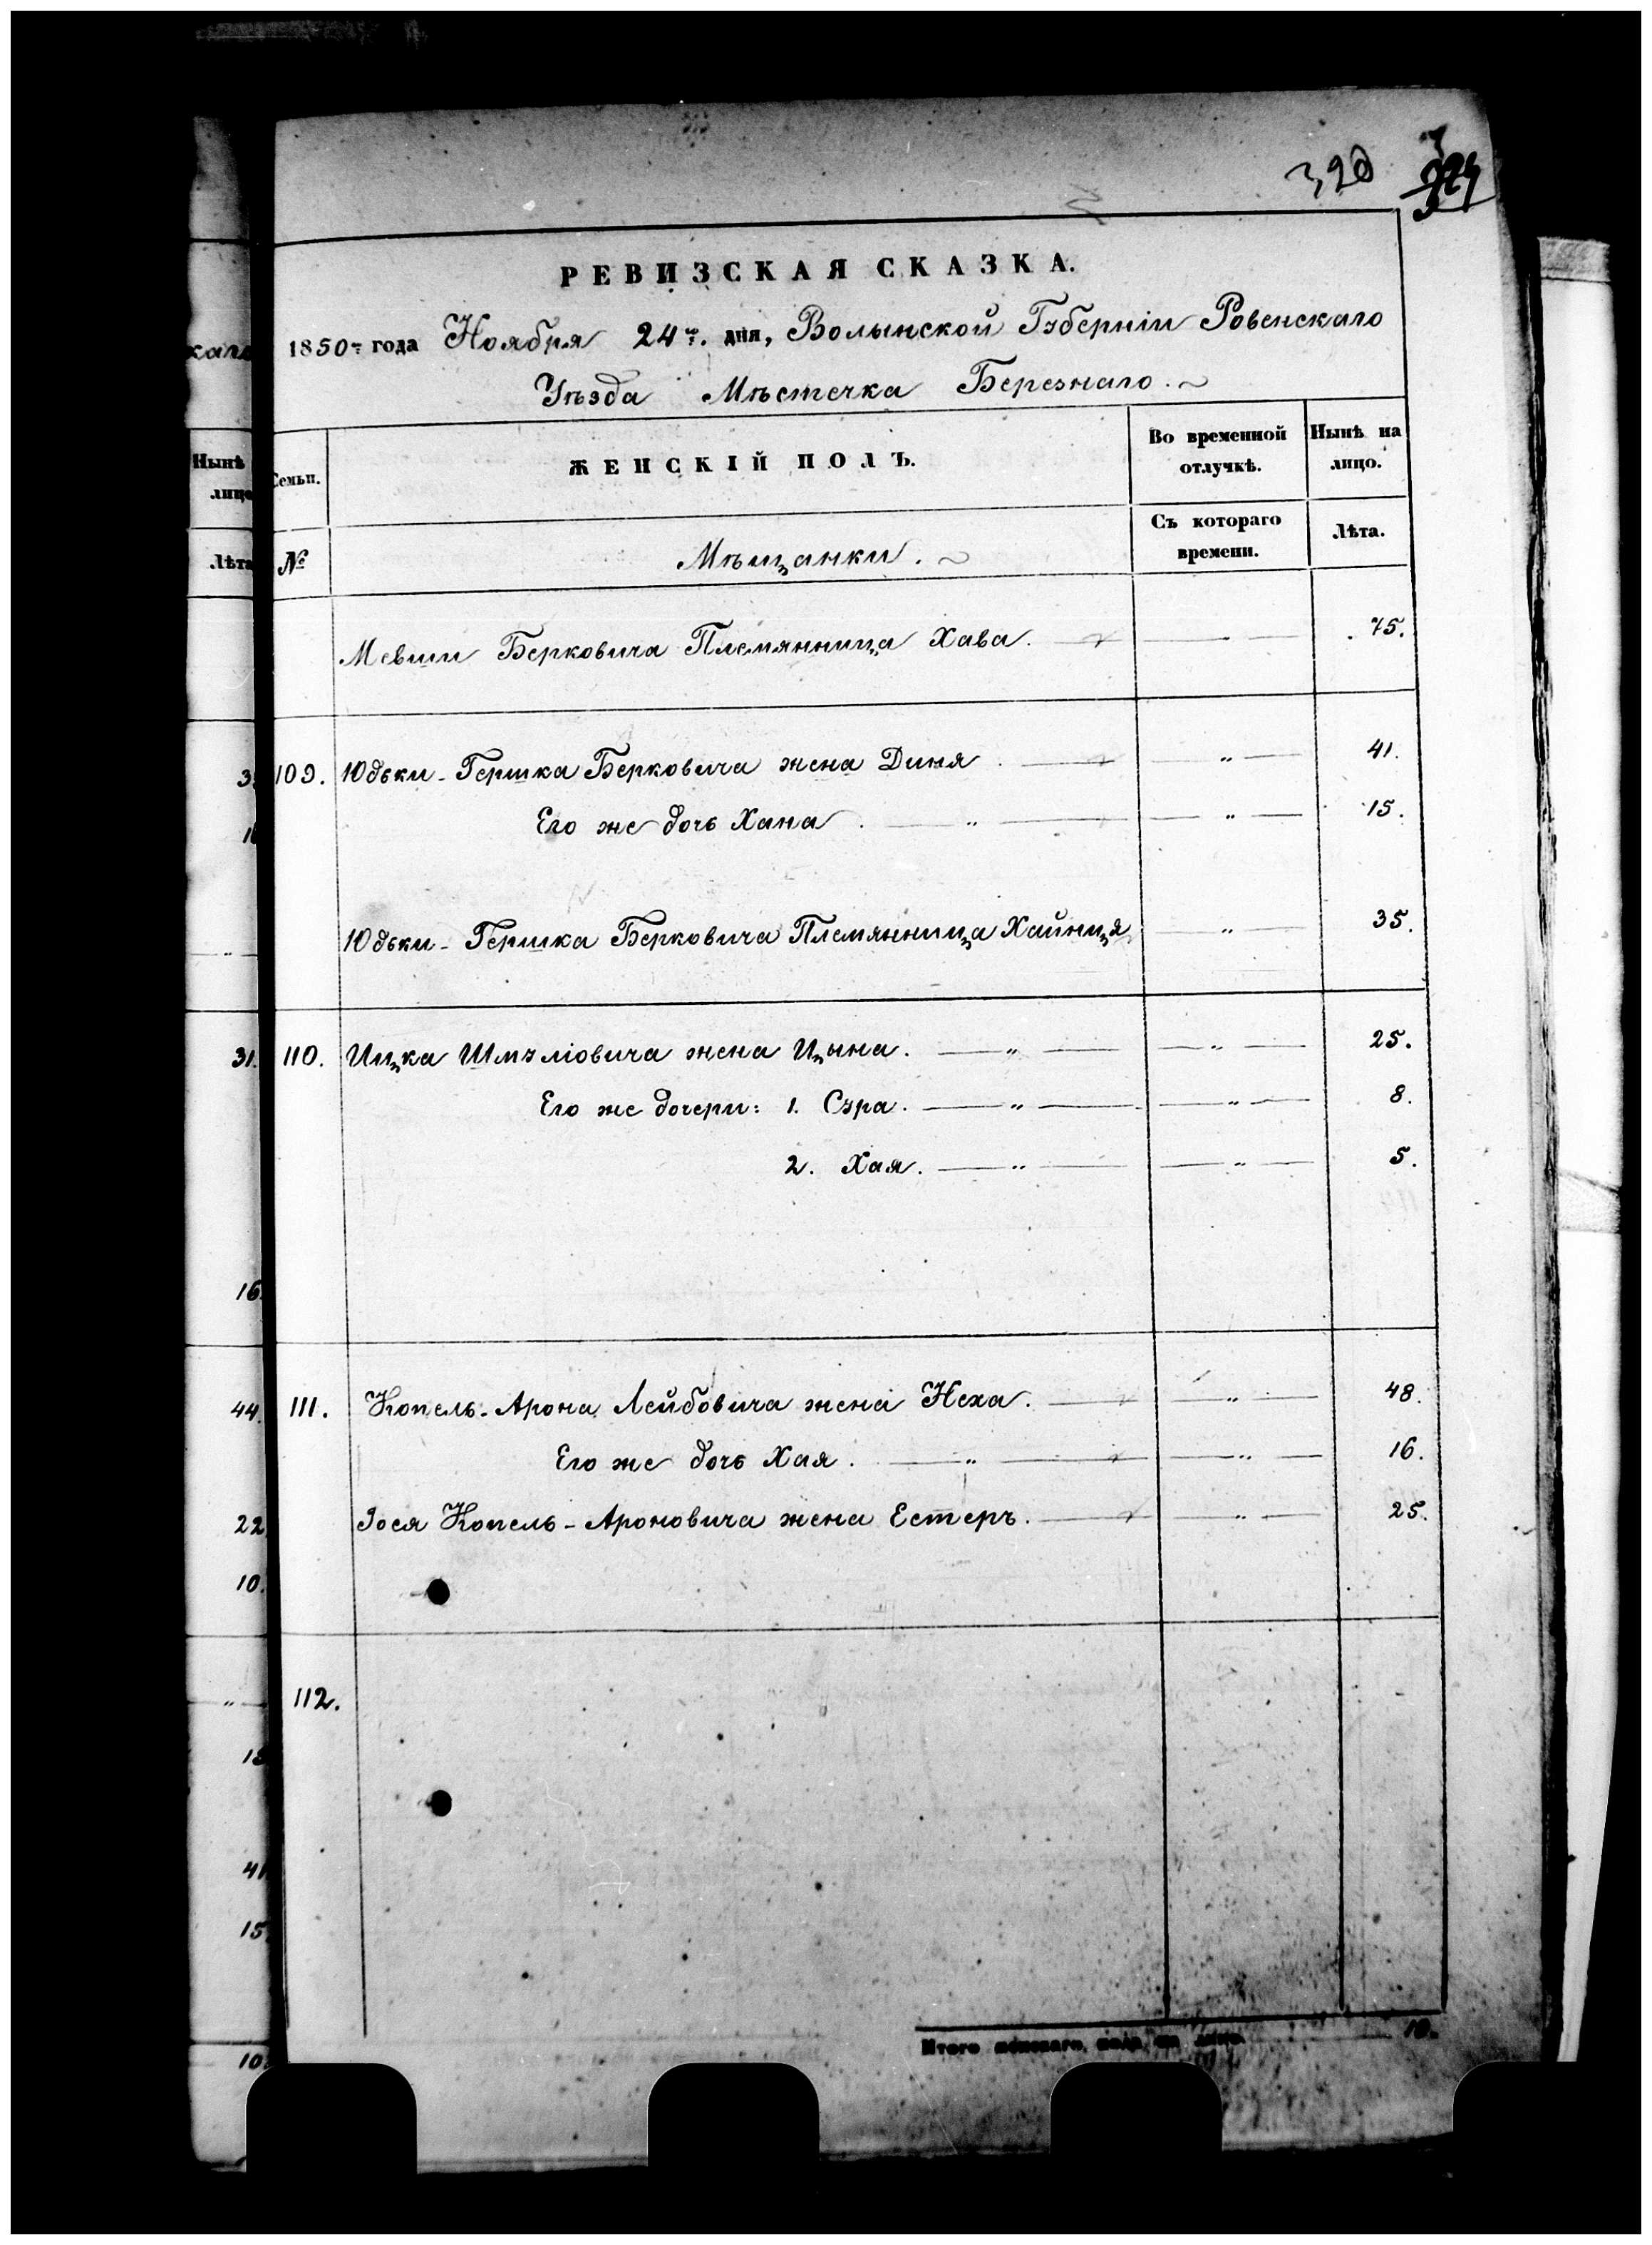 320 324
РЕВИЗСКАЯ СКАЗКА.
1850го года Ноября 24го. дня, Волынской Губерніи Ровенскаго
Уѣзда Мѣстечка Березнаго.
каго
Нынѣ
лицо
Лѣта
Семьи. ЖЕНСКІЙ ПОЛЪ. Во временной отлучкѣ. Нынѣ на лицо.
№ Мѣщанки. Съ котораго времени. Лѣта.
Мевши Берковича Племянница Хава. 75.
109. Юдьки-Гершка Берковича жена Диня. " 41.
Его же дочь Хана. " " 15.
Юдьки-Гершка Берковича Племянница Хайниця " 35.
31. 110. Ицка Шмуліовича жена Цына. " " 25.
Его же дочери: 1. Сура. " " 8.
2. Хая. " " 5.
16.
44. 111. Копель-Арона Лейбовича жена Неха. " 48.
Его же дочь Хая. " " 16.
22 Іося Копель-Ароновича жена Естеръ. " 25.
10.
" 112.
41
15
10. Итого женскаго пола на лицо 10.